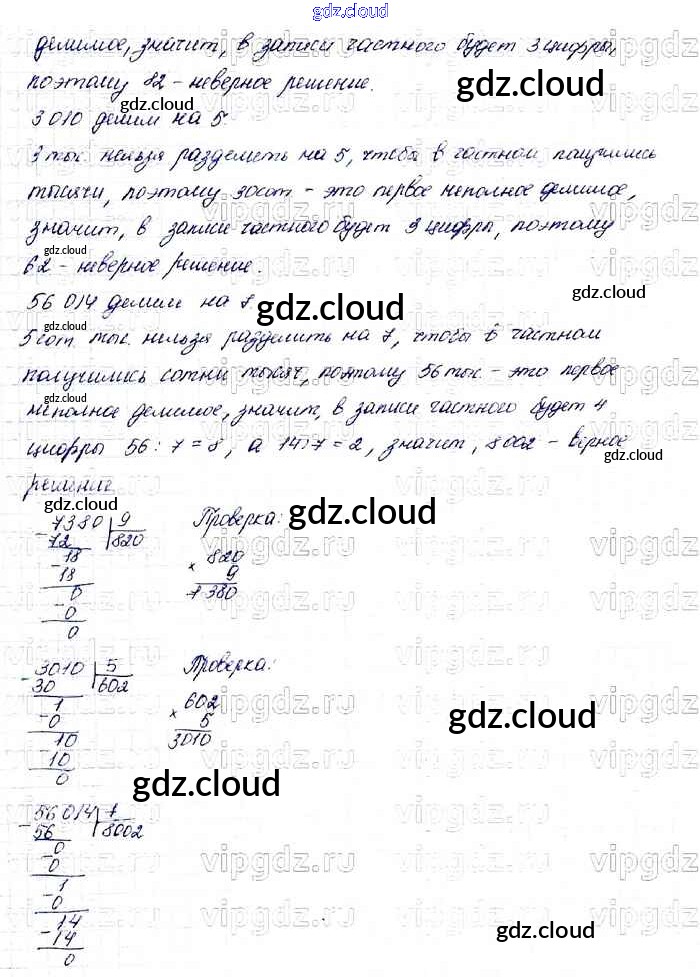 gdz.cloud
делимое, значит, в записи частного будет 3 цифры,
поэтому 82 - неверное решение.
gdz.cloud
gdz.cloud
3010 делим на 5.
3 тыс. нельзя разделить на 5, чтобы в частном получились
gdz.cloud
тысячи, поэтому 30 сот - это первое неполное делимое,
значит, в записи частного будет 3 цифры, поэтому
gdz.cloud
62 - неверное решение.
56 014 делим на 7.
gdz.cloud
gdz.cloud
5 сот. тыс. нельзя разделить на 7, чтобы в частном
получились сотни тысяч, поэтому 56 тыс - это первое
неполное делимое, значит, в записи частного будет 4
цифры 56 : 7 = 8, а 14 : 7 = 2, значит, 8002 - верное
gdz.cloud
решение
gdz.cloud
7380 9 Проверка:
gdz.cloud
-72 820
18 × 820
-18 9
0 7380
-0
0
3010 5 Проверка:
-30 602
1 × 602
-0 5
10 3010
10
0
gdz.cloud
gdz.cloud
56014 7
-56 8002
0
-0
1
-0
14
-14
0
gdz.cloud
vipgdz.ru